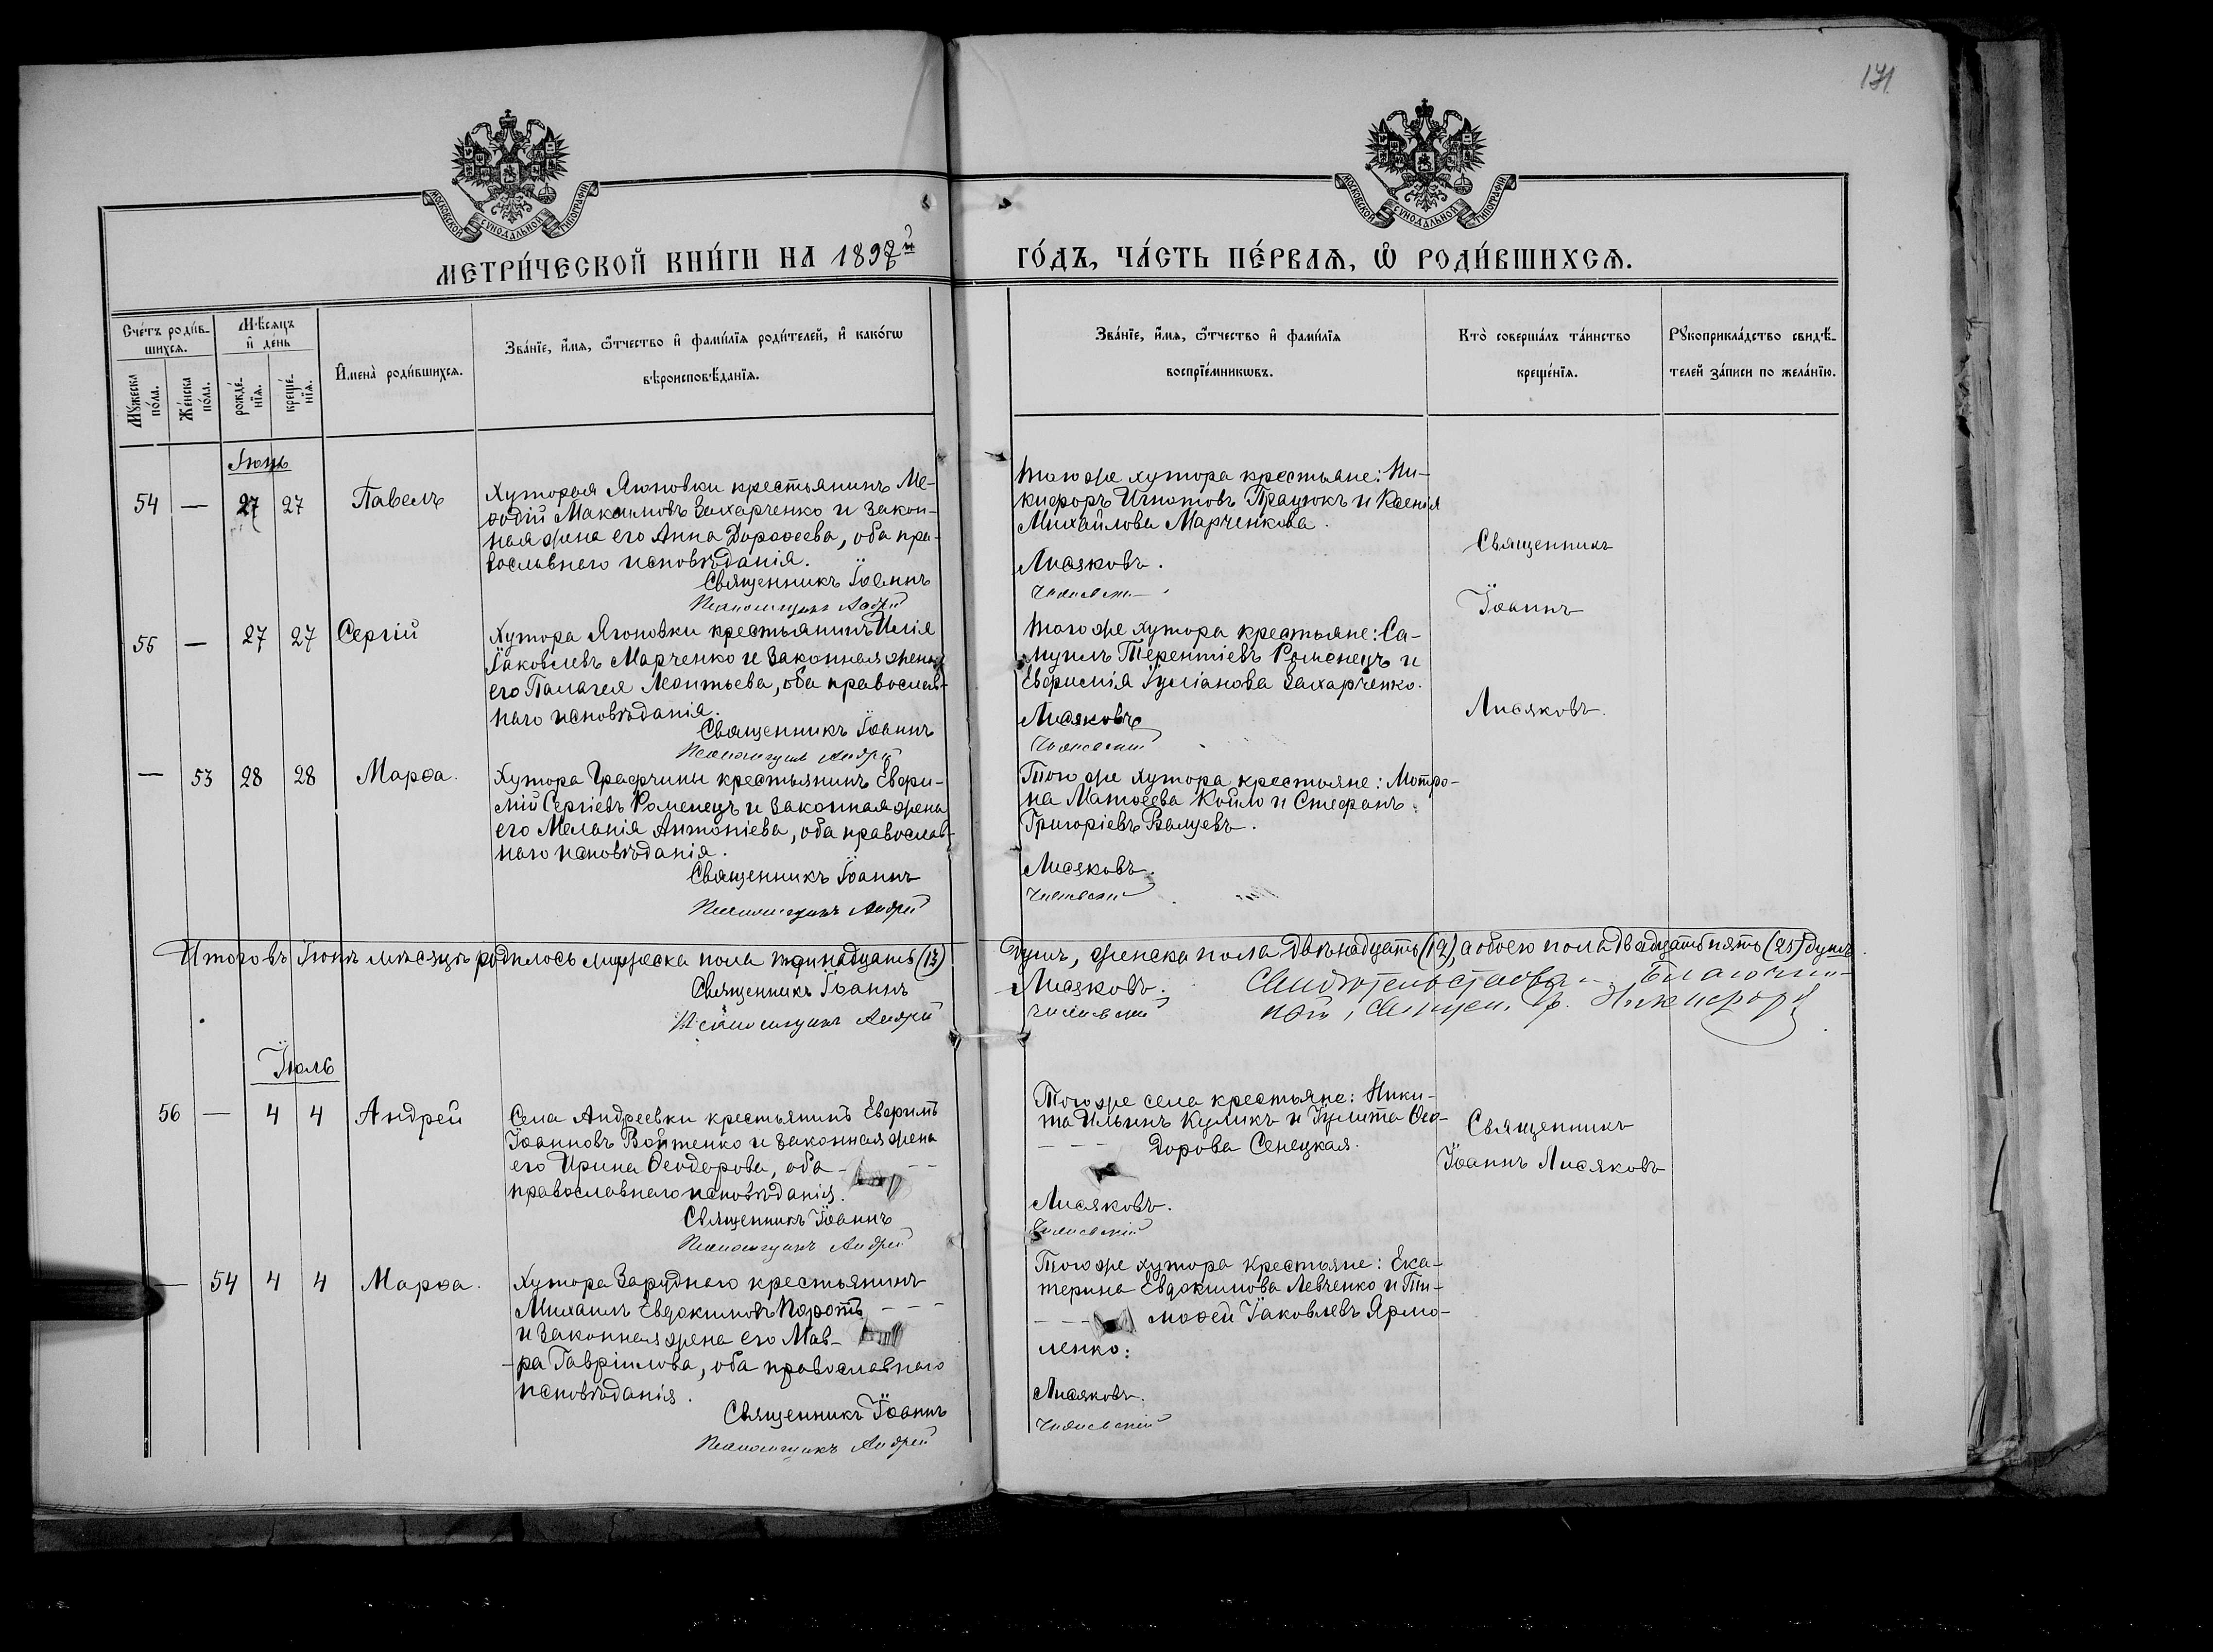 171
МОСКОВСКОЙ СУНОДАЛЬНОЙ ТИПОГРАФІИ
МОСКОВСКОЙ СУНОДАЛЬНОЙ ТИПОГРАФІИ
МЕТРИ́ЧЕСКОЙ КНИ́ГИ НА 1897й
ГО́ДЪ, ЧА́СТЬ ПЕ́РВАѦ, Ѡ РОДИ́ВШИХСѦ.
Сче́тъ роди́в-
шихсѧ.
Мѣ́сѧцъ
и҆ де́нь
И҆мена̀ роди́вшихсѧ.
Зва́нїе, и҆́мѧ, ѻ҆́тчество и҆ фами́лїѧ роди́телей, и҆ како́гѡ
вѣроисповѣ́данїѧ.
Мꙋ́жеска
по́ла.
Же́нска
по́ла.
рожде́-
нїѧ.
креще́-
нїѧ.
Зва́нїе, и҆́мѧ, ѻ҆́тчество и҆ фами́лїѧ
воспрїе́мникѡвъ.
Кто̀ соверша́лъ та́инство
креще́нїѧ.
Рꙋкоприкла́дство свидѣ́-
телей за́писи по жела́нїю.
Іюнь
54 — 27 27 Павелъ
Хутора Ягоповки крестьянинъ Ме-
ѳодій Максимовъ Захарченко и закон-
ная жена его Анна Дороѳеева, оба пра-
вославнаго исповѣданія.
Священникъ Іоаннъ
Псаломщикъ Андрей
Того же хутора крестьяне: Ни-
кифоръ Игнатовъ Працюкъ и Ксенія
Михайлова Марченкова.
Лисяковъ.
Священникъ
Іоаннъ
Лисяковъ.
55 — 27 27 Сергій
Хутора Ягоповки крестьянинъ Илія
Іаковлевъ Марченко и законная жена
его Палагея Леонтьева, оба православ-
наго исповѣданія.
Священникъ Іоаннъ
Псаломщикъ Андрей
Того же хутора крестьяне: Са-
муилъ Терентіевъ Роменецъ и
Евфимія Іуліанова Захарченко.
Лисяковъ
— 53 28 28 Марѳа.
Хутора Графчины крестьянинъ Евфи-
мій Сергіевъ Роменецъ и законная жена
его Меланія Антоніева, оба православ-
наго исповѣданія.
Священникъ Іоаннъ
Псаломщикъ Андрей
Того же хутора крестьяне: Мотро-
на Матѳеева Койло и Стефанъ
Григоріевъ Валуевъ.
Лисяковъ.
Итого въ Іюнѣ мѣсяцѣ родилось мужеска пола тринадцать (13)
душъ, женска пола двѣнадцать (12), а обоего пола двадцать пять (25) душъ.
Священникъ Іоаннъ
Псаломщикъ Андрей
Лисяковъ.
Свидѣтельствовалъ Благочин-
ный, Священ. Гр. Никифоръ
Іюль
56 — 4 4 Андрей
Села Андреевки крестьянинъ Евфимъ
Іоанновъ Войтенко и законная жена
его Ирина Ѳеодорова, оба —
православнаго исповѣданія.
Священникъ Іоаннъ
Псаломщикъ Андрей
Того же села крестьяне: Ники-
та Ильинъ Куликъ и Іулита Ѳео-
— — — дорова Сенецкая.
Лисяковъ.
Священникъ
Іоаннъ Лисяковъ
— 54 4 4 Марѳа.
Хутора Заруднаго крестьянинъ
Михаилъ Евдокимовъ Коротъ — — —
и законная жена его Мав-
-ра Гавріилова, оба православнаго
исповѣданія.
Священникъ Іоаннъ
Псаломщикъ Андрей
Того же хутора крестьяне: Ека-
терина Евдокимова Левченко и Ти-
— — моѳей Іаковлевъ Ярмо-
ленко:
Лисяковъ.